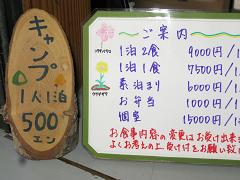 キャンプ
1人1泊
500
エン
～ご案内～
1泊2食 9000円/1
1泊1食 7500円/1
素泊まり 6000円/1
お弁当 1000円/1
個室 15000円/1
お食事内容の変更はお受け出来ま
よくお考えの上、受け付をお願い致し